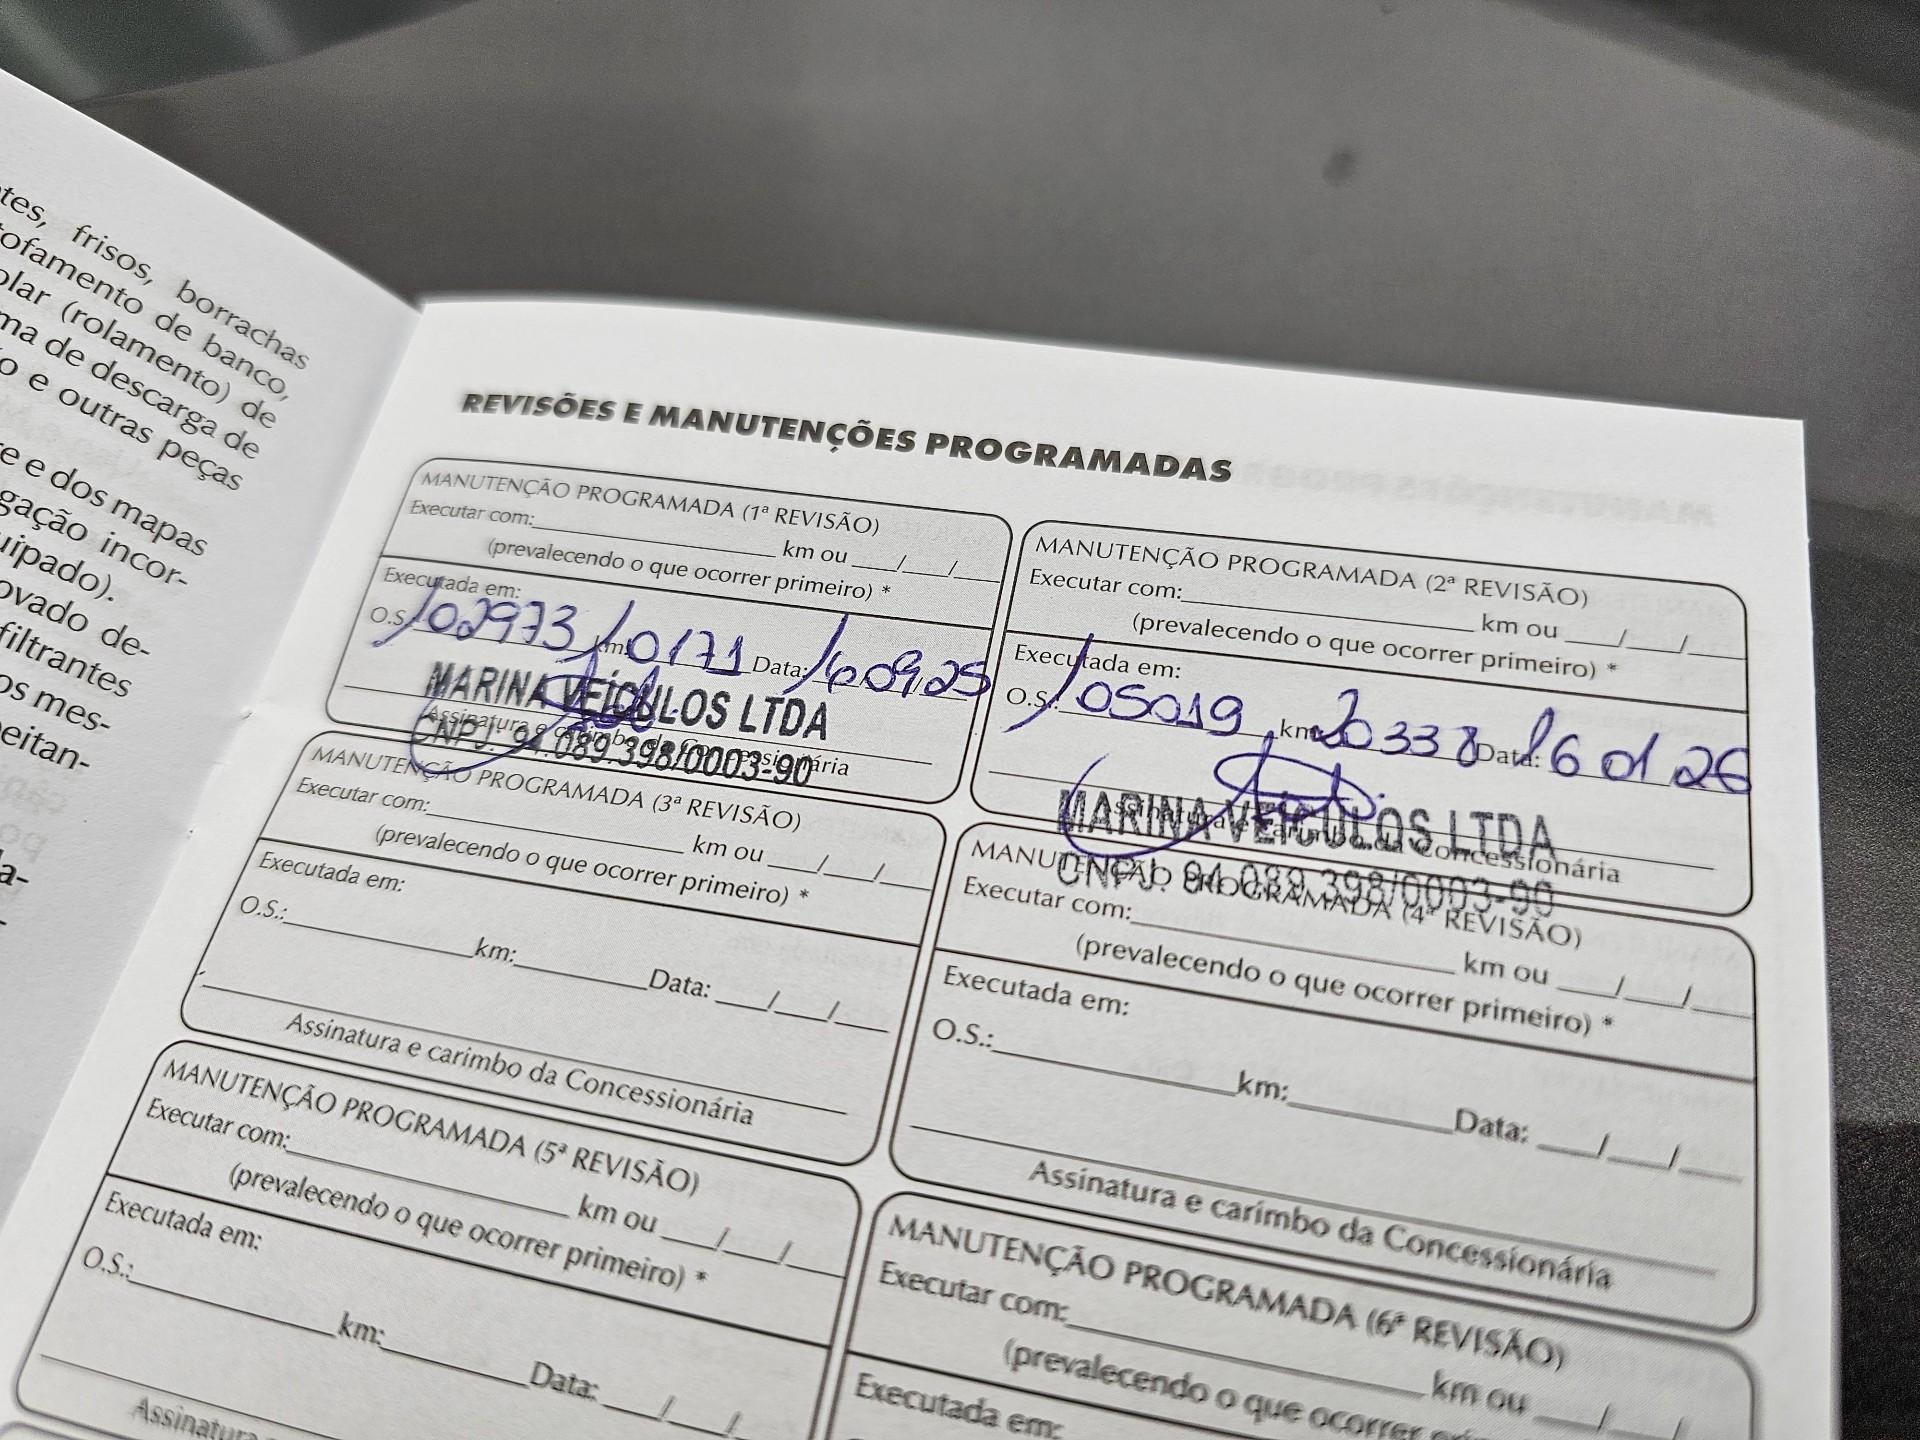 tes, frisos, borrachas
tofamento de banco,
olar (rolamento) de
ma de descarga de
o e outras peças
re e dos mapas
gação incor-
uipado).
ovado de-
filtrantes
os mes-
peitan-
a-
REVISÕES E MANUTENÇÕES PROGRAMADAS
MANUTENÇÃO PROGRAMADA (1ª REVISÃO)
Executar com:
km ou / /
(prevalecendo o que ocorrer primeiro) *
Executada em:
O.S.: 102973 km: 10171 Data: 160925
MARINA VEÍCULOS LTDA
Assinatura e carimbo da Concessionária
CNPJ. 94.089.398/0003-90
MANUTENÇÃO PROGRAMADA (2ª REVISÃO)
Executar com:
km ou / /
(prevalecendo o que ocorrer primeiro) *
Executada em:
O.S.: 105019 km: 20338 Data: 16 01 26
MARINA VEÍCULOS LTDA
Assinatura e carimbo da Concessionária
CNPJ. 94.089.398/0003-90
MANUTENÇÃO PROGRAMADA (3ª REVISÃO)
Executar com:
km ou / /
(prevalecendo o que ocorrer primeiro) *
Executada em:
O.S.: km: Data: / /
Assinatura e carimbo da Concessionária
MANUTENÇÃO PROGRAMADA (4ª REVISÃO)
Executar com:
km ou / /
(prevalecendo o que ocorrer primeiro) *
Executada em:
O.S.: km: Data: / /
Assinatura e carimbo da Concessionária
MANUTENÇÃO PROGRAMADA (5ª REVISÃO)
Executar com:
km ou / /
(prevalecendo o que ocorrer primeiro) *
Executada em:
O.S.: km: Data: / /
Assinatura
MANUTENÇÃO PROGRAMADA (6ª REVISÃO)
Executar com:
km ou / /
(prevalecendo o que ocorrer
Executada em: